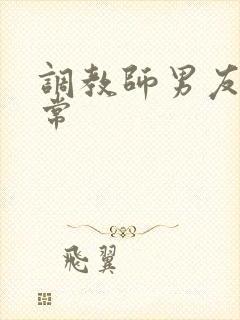 調教師男友
常
飛翼